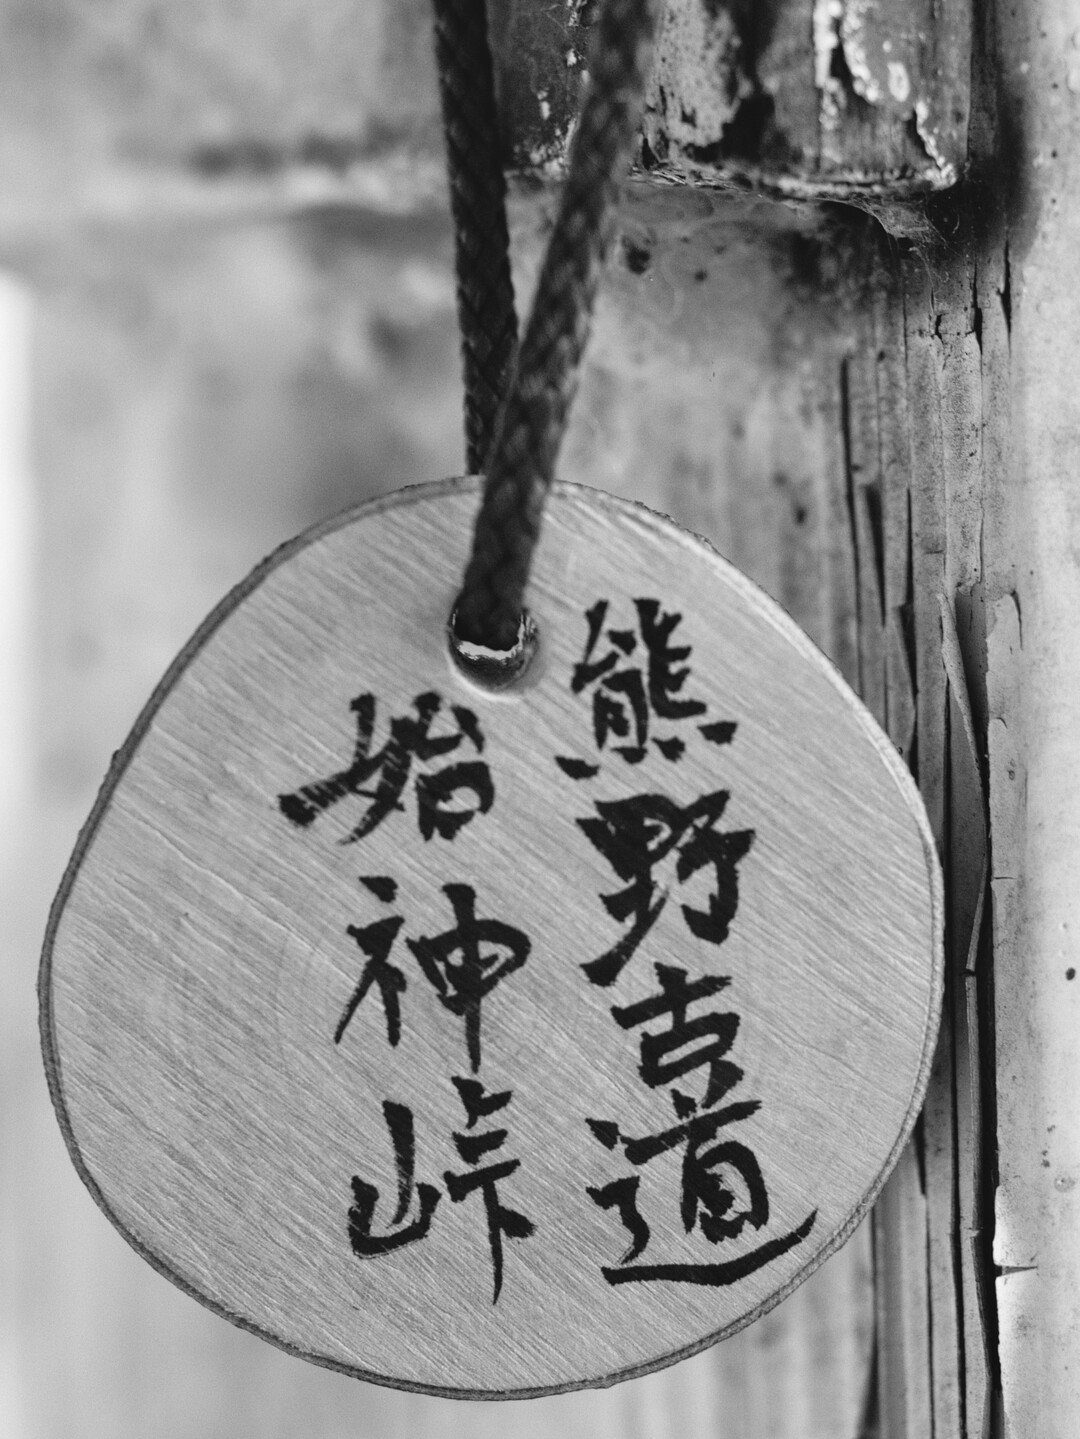 熊野古道
始神峠